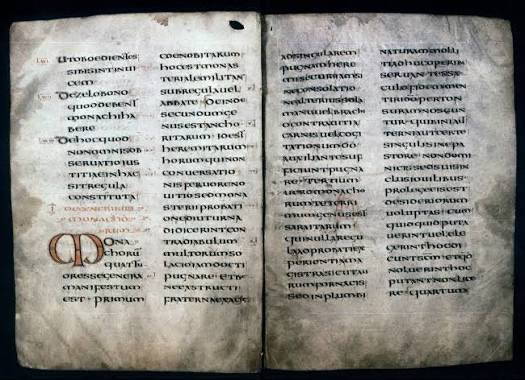 LXXI UT OBOEDIENTES
SIBI SINT INUI
CEM
LXXII DE ZELO BONO
QUOD DEBENT
MONACHI HA
BERE
LXXIII DE HOC QUOD
NON OMNIS OB
SERUATIO IUS
TITIAE IN HAC
SIT REGULA
CONSTITUTA
I DE GENERIBUS
MONACHO
RUM
MONA
CHORU
QUATTU
OR ESSE GENERA
MANIFESTUM
EST PRIMUM
COENOBITARUM
HOC EST MONAS
TERIALE MILITAN
SUB REGULA UEL
ABBATE DEINDE
SECUNDUM GE
NUS EST ANCHO
RITARUM ID EST
HEREMITARUM
HORUM QUI NON
CONUERSATIO
NIS FERUORE NO
UITIO SED MONA
STERII PROBATI
ONE DIUTURNA
DIDICERINT CON
TRA DIABULUM
MULTORUM SO
LACIO IAM DOCTI
PUGNARE ET BE
NE EXSTRUCTI
FRATERNA EX ACIE
AD SINGULAREM
PUGNAM HERE
MI SECURI IAM SI
NE CONSOLATIO
NE ALTERIUS SOLA
MANU UEL BRACHI
O CONTRA UITIA
CARNIS UEL COGI
TATIONUM DO
AUXILIANTE SUF
FICIUNT PUGNA
RE TERTIUM
UERO MONACHO
RUM TETERRI
MUM GENUS EST
SARABAITARUM
QUI NULLA REGU
LA ADPROBATI EX
PERIENTIA MA
GISTRA SICUT AU
RUM FORNACIS
SED IN PLUMBI
NATURAM MOLLI
TI ADHUC OPERIB
SERUANTES SAE
CULO FIDEM MEN
TIRI DO PER TON
SURAM NOSCUN
TUR QUI BINI AUT
TERNI AUT CERTE
SINGULI SINE PA
STORE NON DOMI
NICIS SED SUIS IN
CLUSI OUILIBUS
PRO LEGE EIS EST
DESIDERIORUM
UOLUPTAS CUM
QUICQUID PUTA
UERINT UEL ELE
GERINT HOC DI
CUNT SCM ET QD
NOLUERINT HOC
PUTANT NON LICE
RE QUARTUM